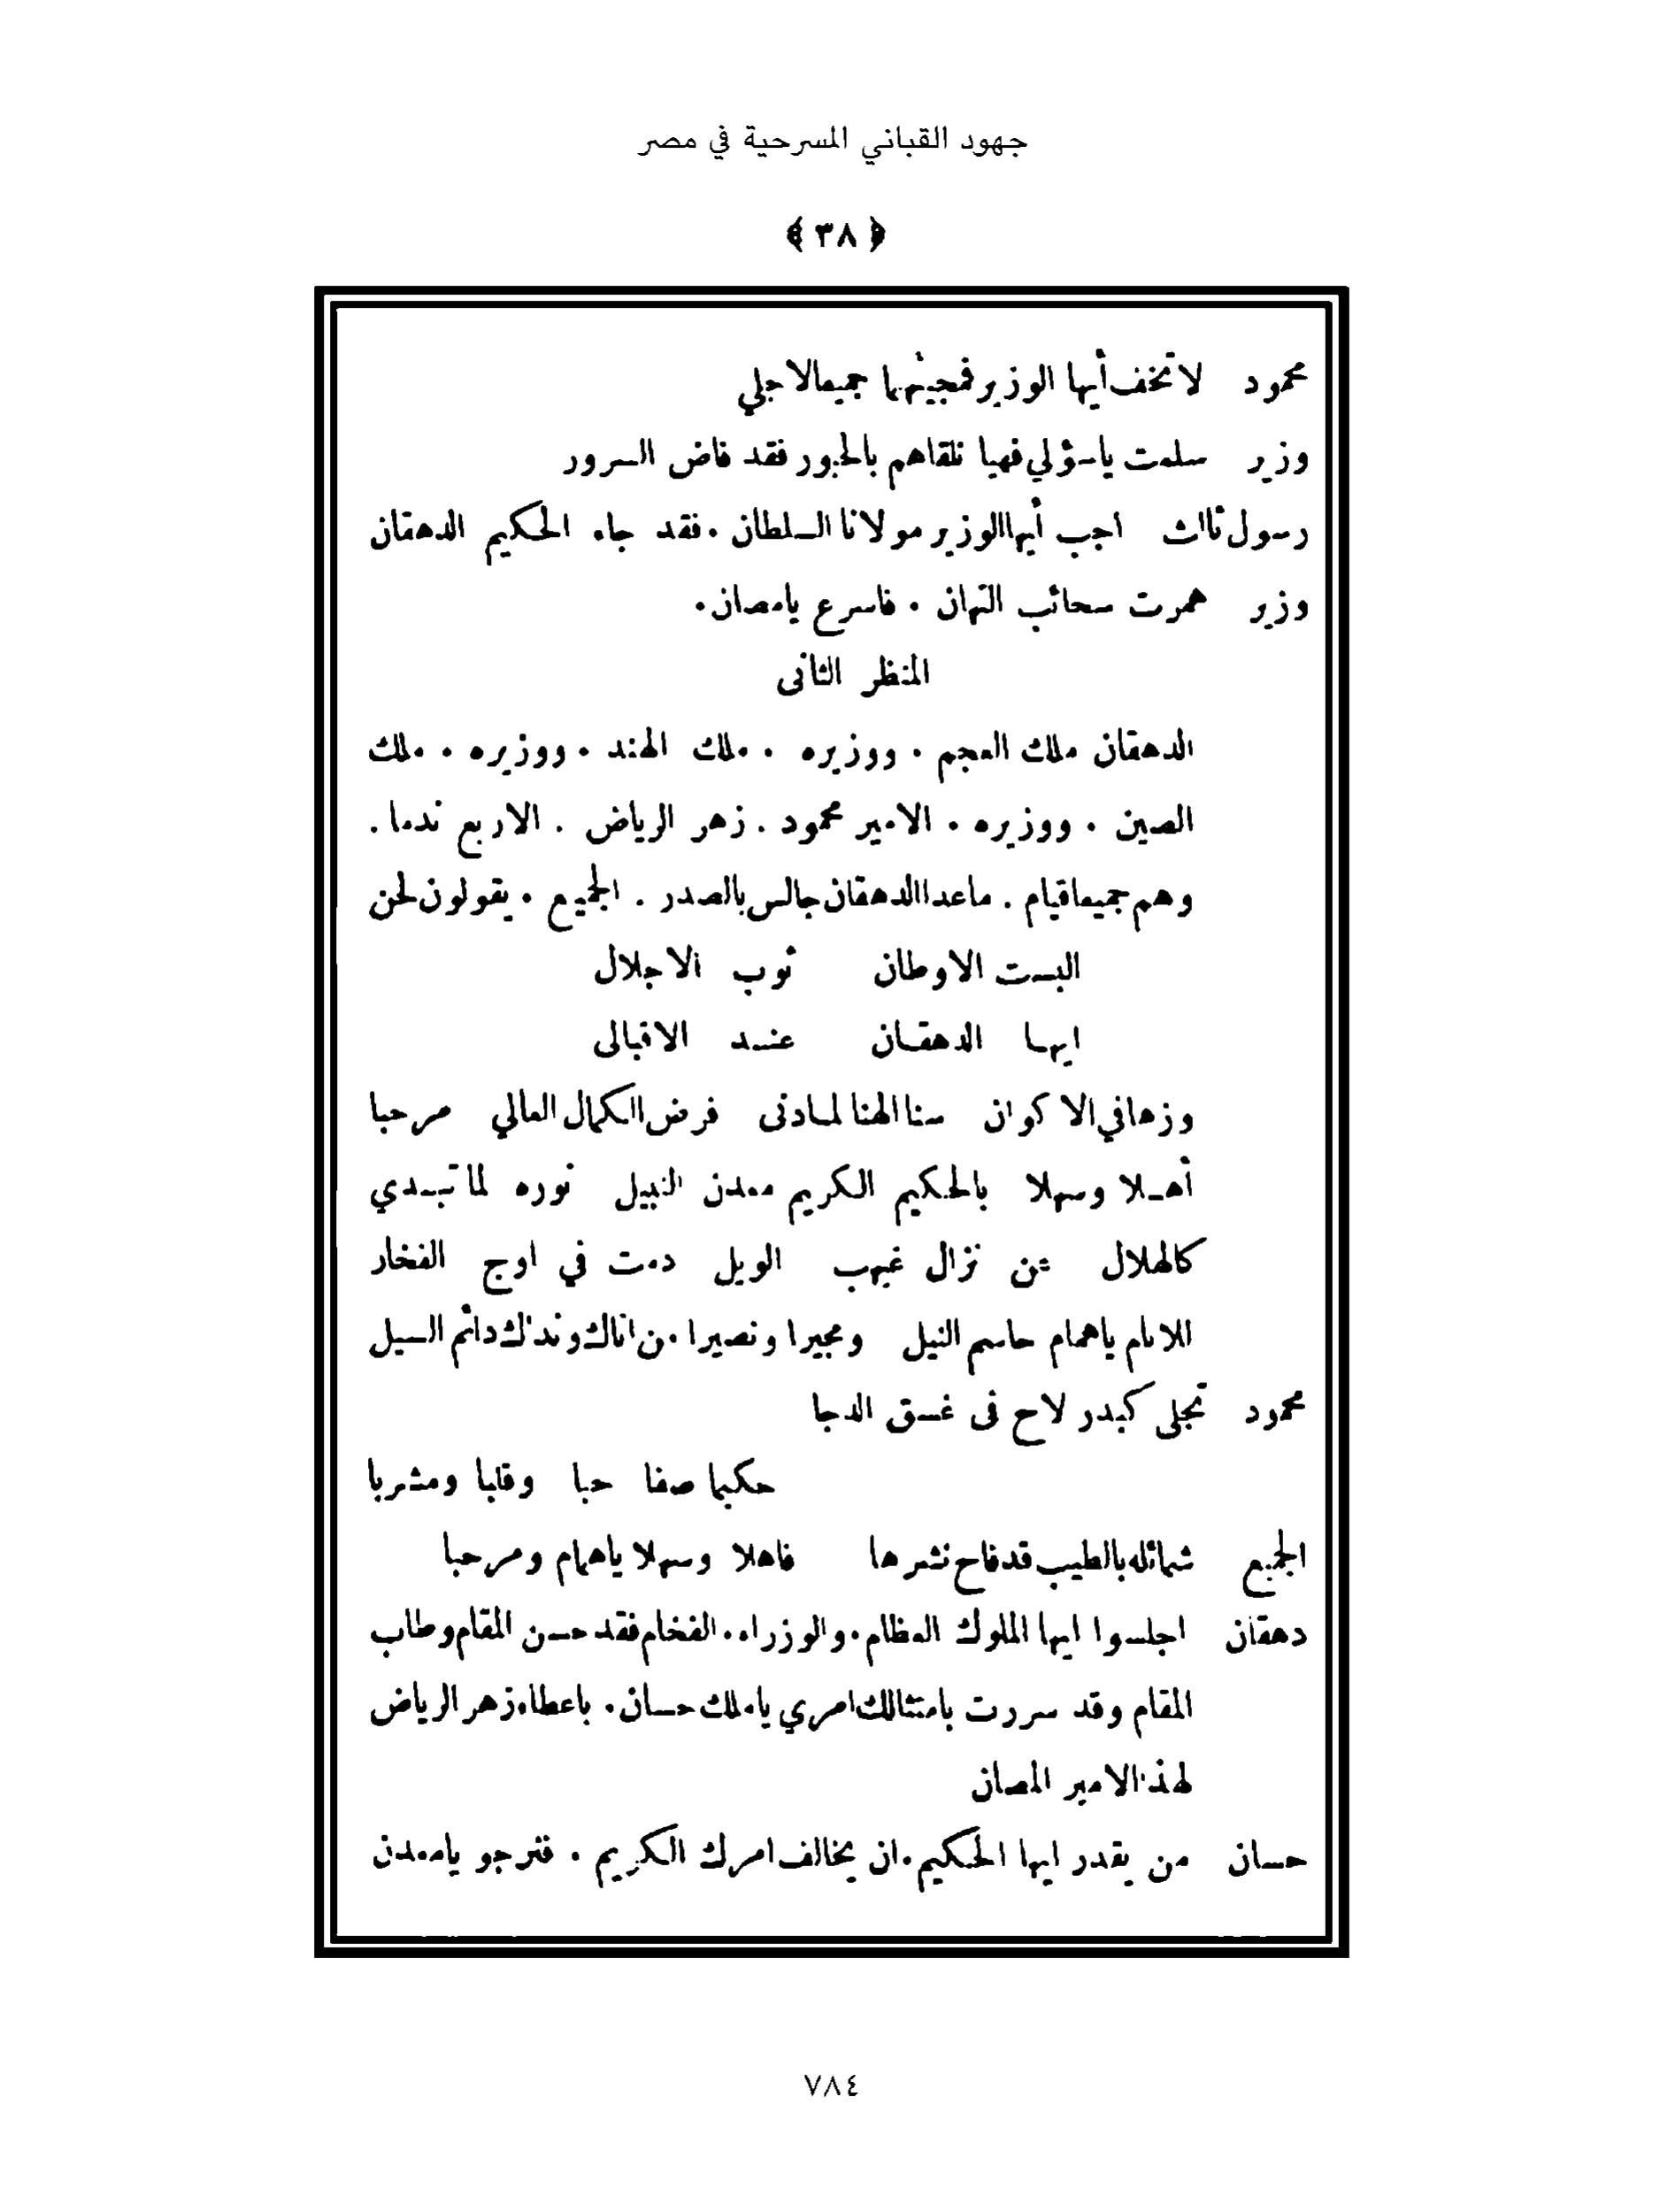 جهود القباني المسرحية في مصر
﴿ ٣٨ ﴾
محمود لا تخف أيها الوزير فمجيئهما جميعا لاجلي
وزير سلمت ياسؤلي فهيا نلقاهم بالحبور فقد فاض السرور
رسول ثالث اجب أيها الوزير مولانا السلطان . فقد جاء الحكيم الدهقان
وزير همرت سحائب التهان . فاسرع يامصان .
المنظر الثانى
الدهقان ملك العجم . ووزيره . ملك الهند . ووزيره . ملك
الصين . ووزيره . الامير محمود . زهر الرياض . الاربع ندما .
وهم جميعا قيام . ماعدا الدهقان جالس بالصدر . الجميع . يقولون لحن
البست الاوطان ثوب الاجلال
ايها الدهقان عند الاقبالى
وزها في الاكوان سنا الهنا لما دنى فرض الكمال العالي مرحبا
أهلا وسهلا بالحكيم الكريم معدن النبيل نوره لما تبدي
كالهلال عن نزال غيهب الويل دمت في اوج الفخار
للانام ياهمام حاسم النيل ومجيرا ونصيرا من اتاك ونداك دائم السيل
محمود تجلى كبدر لاح فى غسق الدجا
حكيما صفا حبا وقلبا ومشربا
الجميع شمائله بالطيب قد فاح نشرها فاهلا وسهلا ياهمام ومرحبا
دهقان اجلسوا ايها الملوك العظام . والوزراء . الفخام فقد حسن المقام وطاب
المقام وقد سررت بامتثالك امري ياملك حسان . باعطاء زهر الرياض
لهذا الامير المصان
حسان من يقدر ايها الحكيم . ان يخالف امرك الكريم . فترجو يامعدن
٧٨٤